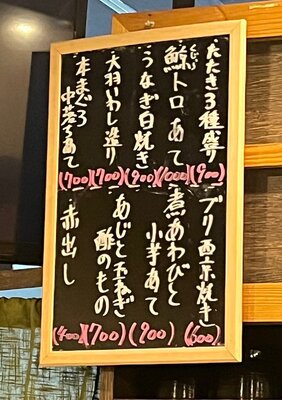 たたき3種盛り(900)
鯨トロあて(1000)
くじら
うなぎ白焼き(900)
大羽いわし造り(700)
本まぐろ
中落ちあて(700)
ブリ西京焼き(600)
煮あわびと
小芋あて(900)
あじと玉ねぎ
酢のもの(700)
赤出し(400)